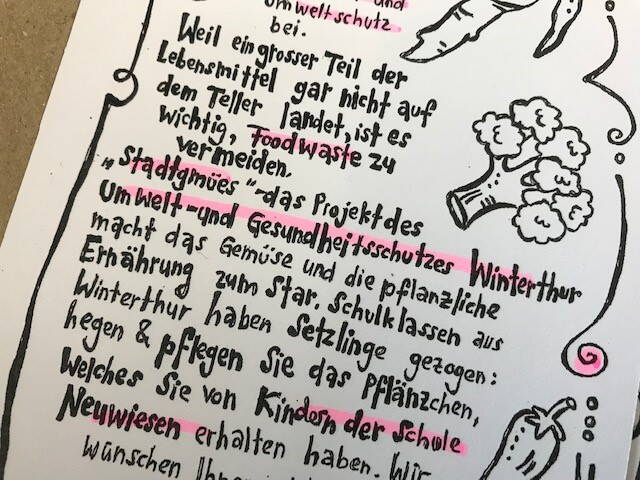 und
Umweltschutz
bei.
Weil ein grosser Teil der
Lebensmittel gar nicht auf
dem Teller landet, ist es
wichtig, Foodwaste zu
vermeiden.
„Stadtgmües“-das Projekt des
Umwelt-und Gesundheitsschutzes Winterthur
macht das Gemüse und die pflanzliche
Ernährung zum Star. Schulklassen aus
Winterthur haben Setzlinge gezogen:
hegen & pflegen Sie das Pflänzchen,
Welches Sie von Kindern der Schule
Neuwiesen erhalten haben. Wir
wünschen